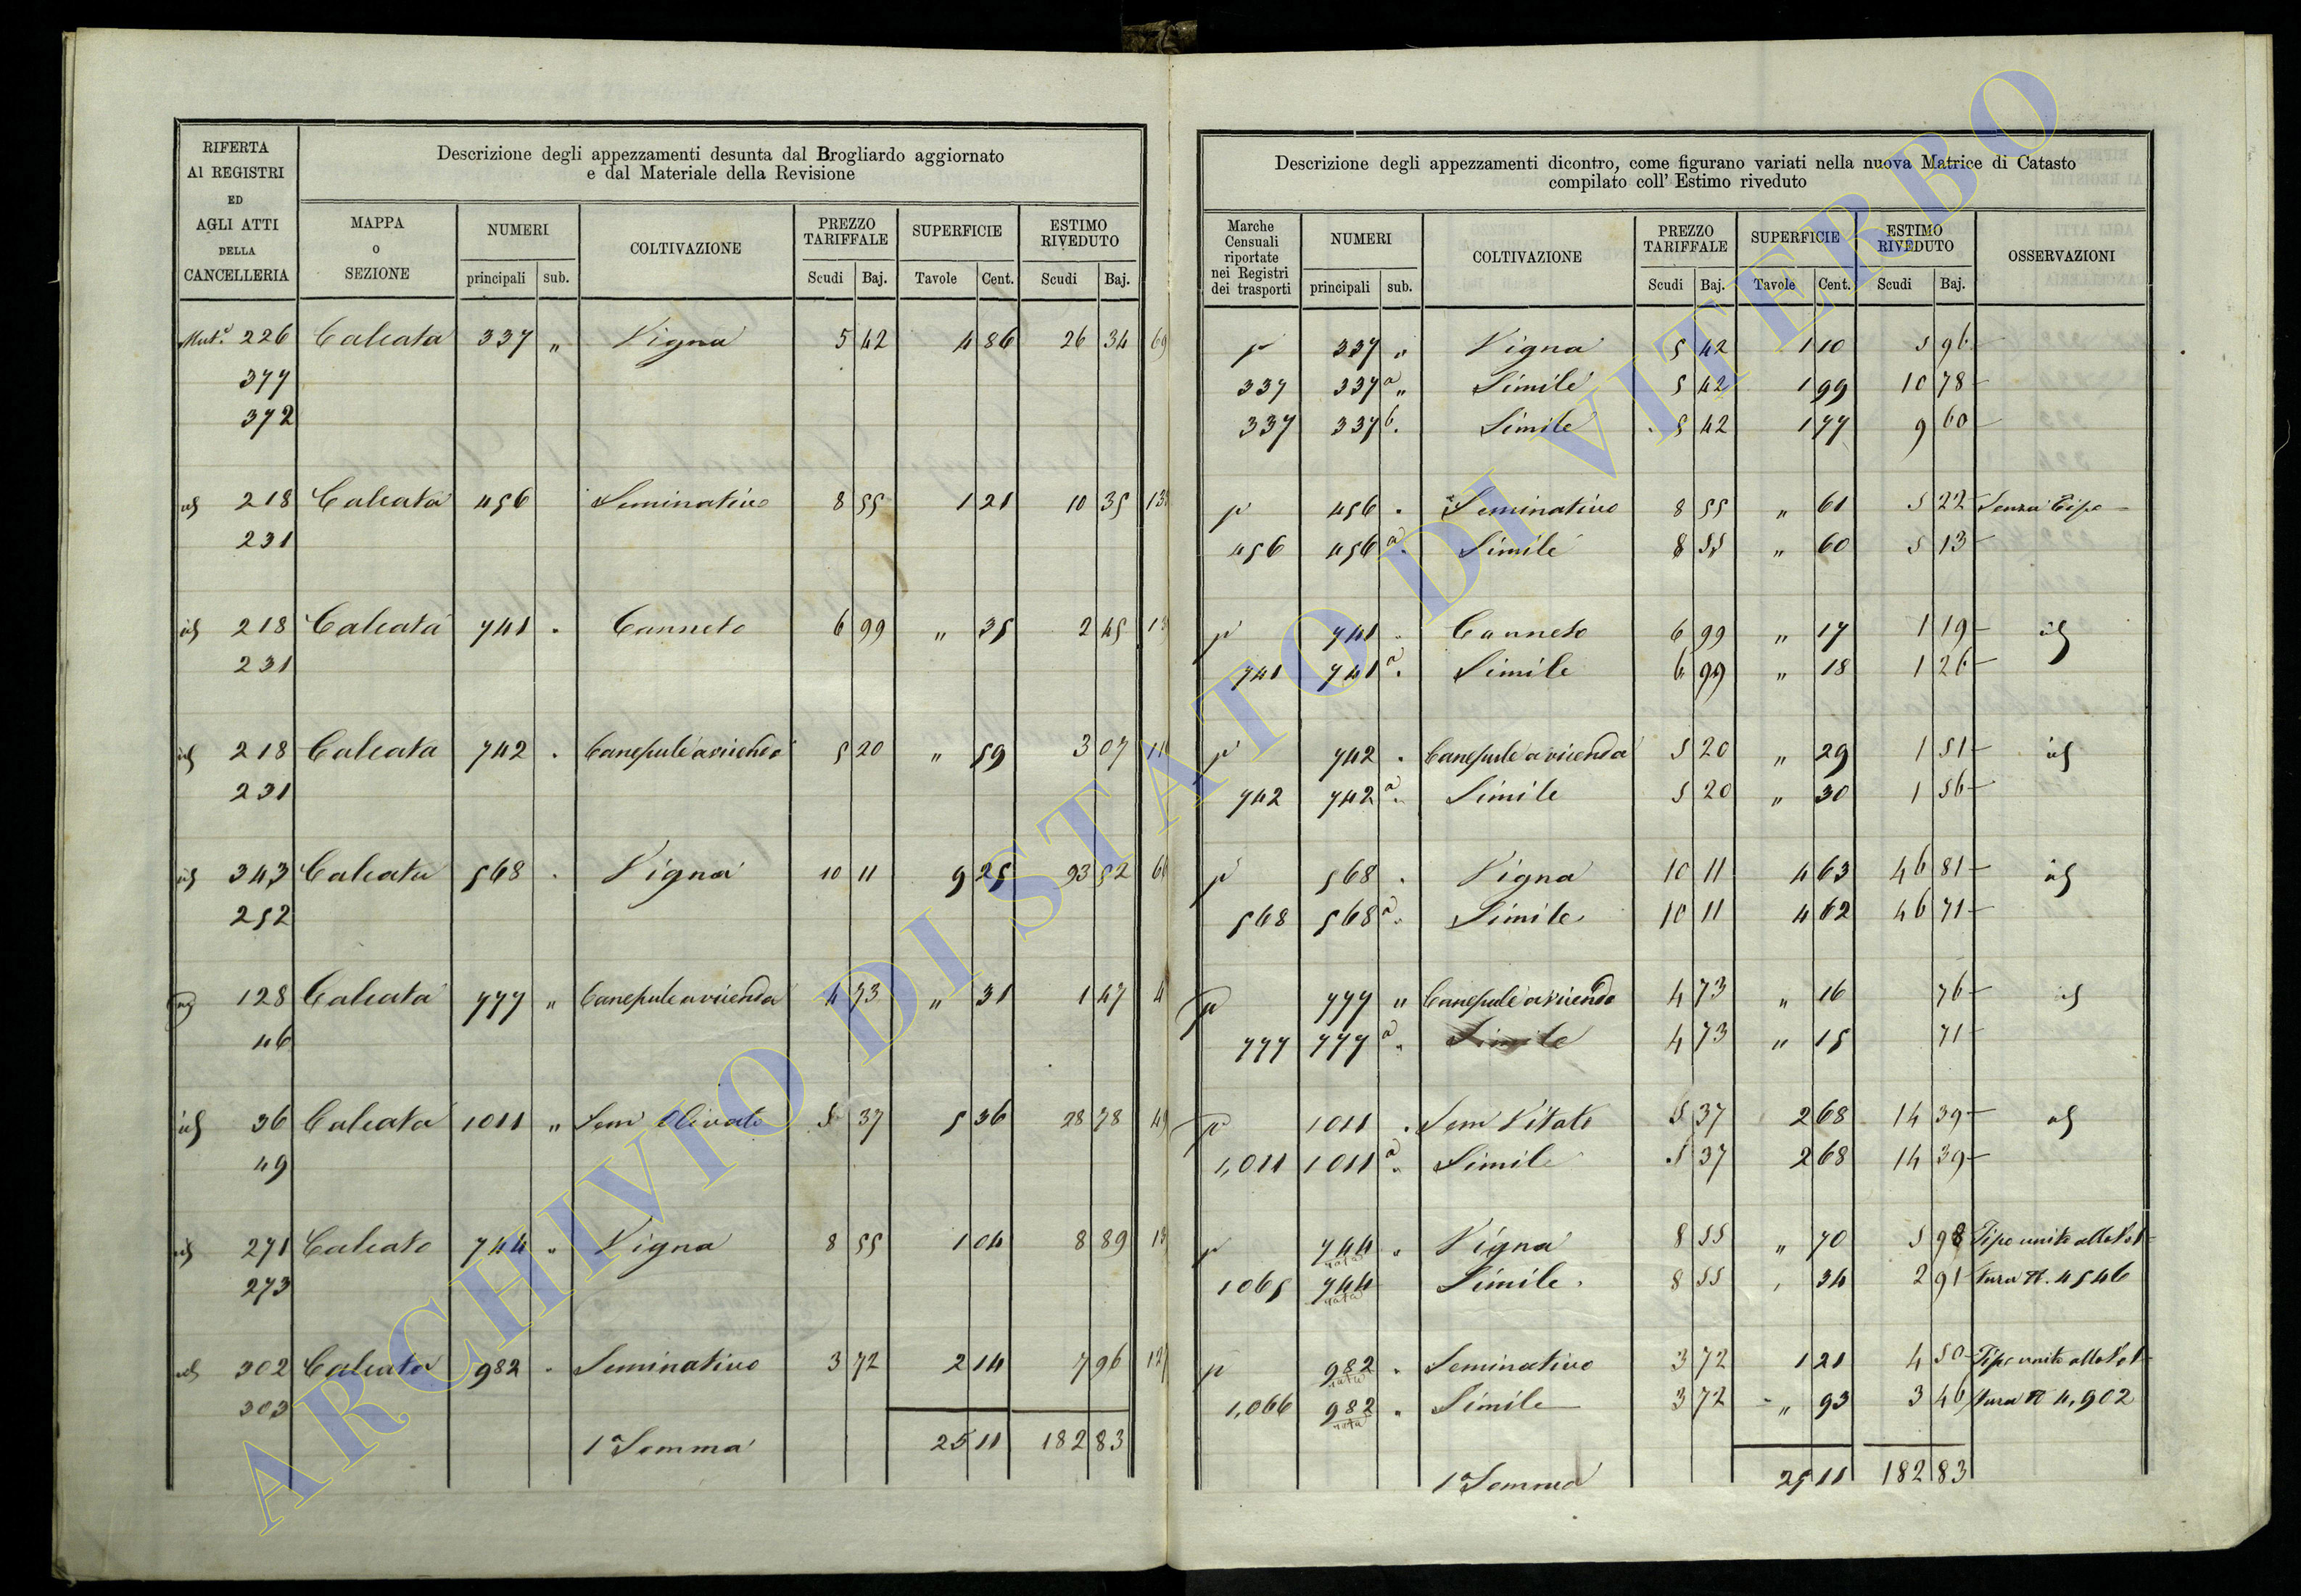 RIFERTA
AI REGISTRI
ED
AGLI ATTI
DELLA
CANCELLERIA
Descrizione degli appezzamenti desunta dal Brogliardo aggiornato
e dal Materiale della Revisione
MAPPA
o
SEZIONE
NUMERI
principali sub.
COLTIVAZIONE
PREZZO
TARIFFALE
Scudi Baj.
SUPERFICIE
Tavole Cent.
ESTIMO
RIVEDUTO
Scudi Baj.
Mut.e 226 Calcata 337 " Vigna 5 42 4 86 26 34 69
377
372
id 218 Calcata 456 Seminativo 8 55 1 21 10 35 13
231
id 218 Calcata 741 . Canneto 6 99 " 35 2 45 13
231
id 218 Calcata 742 . Canepule a vicenda 5 20 " 59 3 07 11
231
id 343 Calcata 568 . Vigna 10 11 9 25 93 52 66
252
128 Calcata 777 " Canepule a vicenda 4 73 " 31 1 47 4
46
id 36 Calcata 1011 " Sem Olivato 5 37 5 36 28 78 49
49
id 271 Calcata 744 " Vigna 8 55 1 04 8 89 13
273
id 302 Calcata 982 . Seminativo 3 72 2 14 7 96 127
303
1a Somma 25 11 182 83
Descrizione degli appezzamenti dicontro, come figurano variati nella nuova Matrice di Catasto
compilato coll' Estimo riveduto
Marche
Censuali
riportate
nei Registri
dei trasporti
NUMERI
principali sub.
COLTIVAZIONE
PREZZO
TARIFFALE
Scudi Baj.
SUPERFICIE
Tavole Cent.
ESTIMO
RIVEDUTO
Scudi Baj.
OSSERVAZIONI
p 337 " Vigna 5 42 1 10 5 96
337 337 a " Simile 5 42 1 99 10 78
337 337 b . Simile 5 42 1 77 9 60
p 456 . Seminativo 8 55 " 61 5 22 Senza Tipo
456 456 a . Simile 8 55 " 60 5 13
p 741 . Canneto 6 99 " 17 1 19 id
741 741 a . Simile 6 99 " 18 1 26
p 742 . Canepule a vicenda 5 20 " 29 1 51 id
742 742 a . Simile 5 20 " 30 1 56
p 568 . Vigna 10 11 4 63 46 81 id
568 568 a . Simile 10 11 4 62 46 71
p 777 " Canepule a vicenda 4 73 " 16 76 id
777 777 a " Simile 4 73 " 15 71
p 1011 . Sem Vitato 5 37 2 68 14 39 id
1,011 1011 a . Simile 5 37 2 68 14 39
p 744 rata . Vigna 8 55 " 70 5 98 Tipo unito alla Vol
1065 744 rata Simile 8 55 " 34 2 91 tura N. 4546
p 982 rata . Seminativo 3 72 1 21 4 50 Tipo unito alla Vol
1,066 982 rata " Simile 3 72 " 93 3 46 tura N 4,902
1a Somma 25 11 182 83
ARCHIVIO DI STATO DI VITERBO